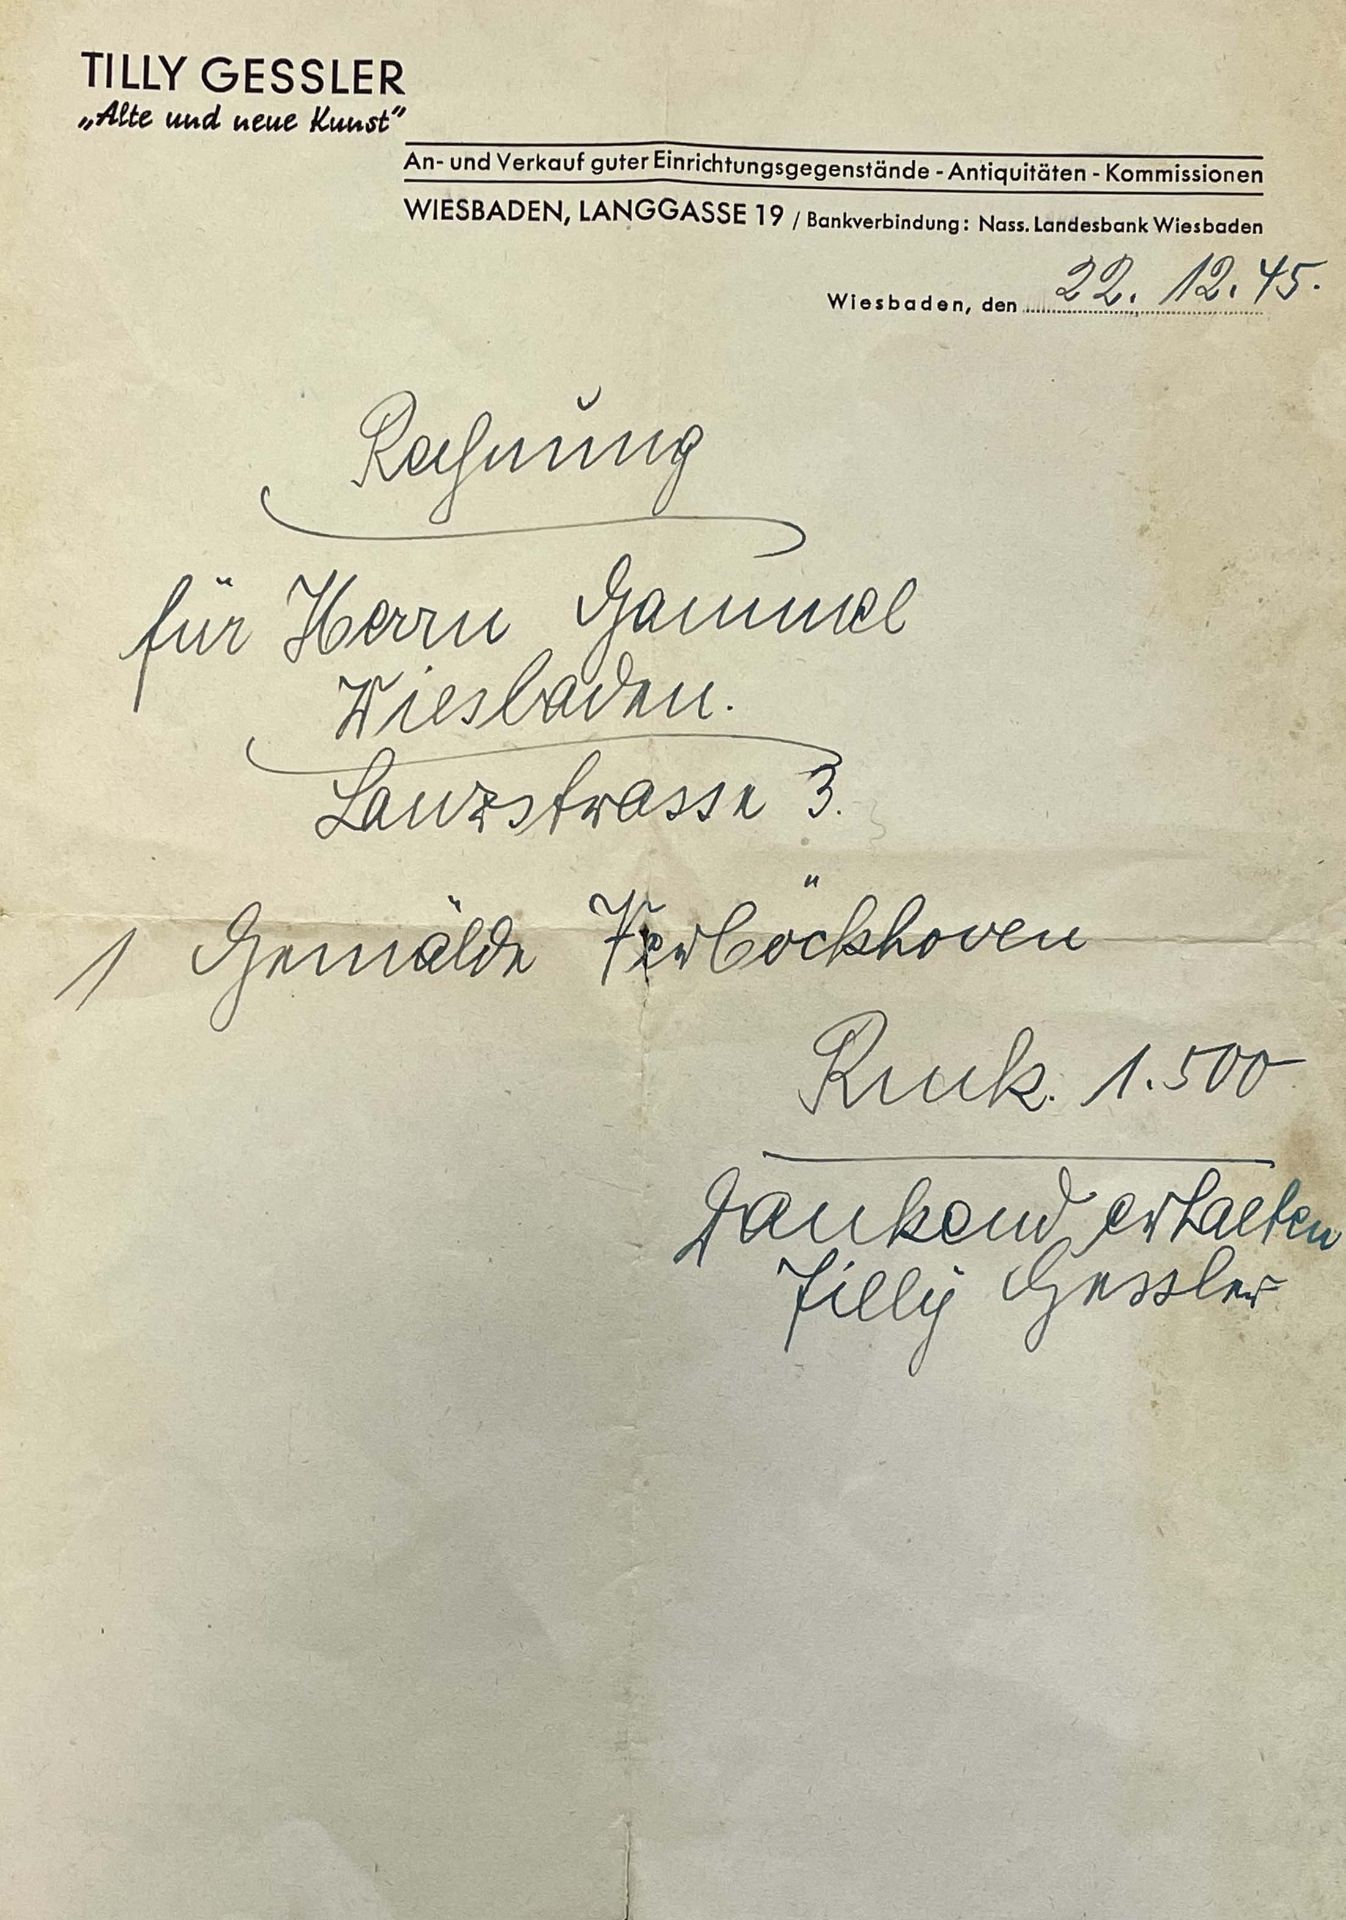 TILLY GESSLER
„Alte und neue Kunst“
An- und Verkauf guter Einrichtungsgegenstände - Antiquitäten - Kommissionen
WIESBADEN, LANGGASSE 19 / Bankverbindung: Nass. Landesbank Wiesbaden
Wiesbaden, den 22. 12. 45.
Rechnung
für Herrn Gammel
Wiesbaden.
Lanzstrasse 3.
1 Gemälde Verböckhoven
Rmk. 1.500
Dankend erhalten
Tilly Gessler